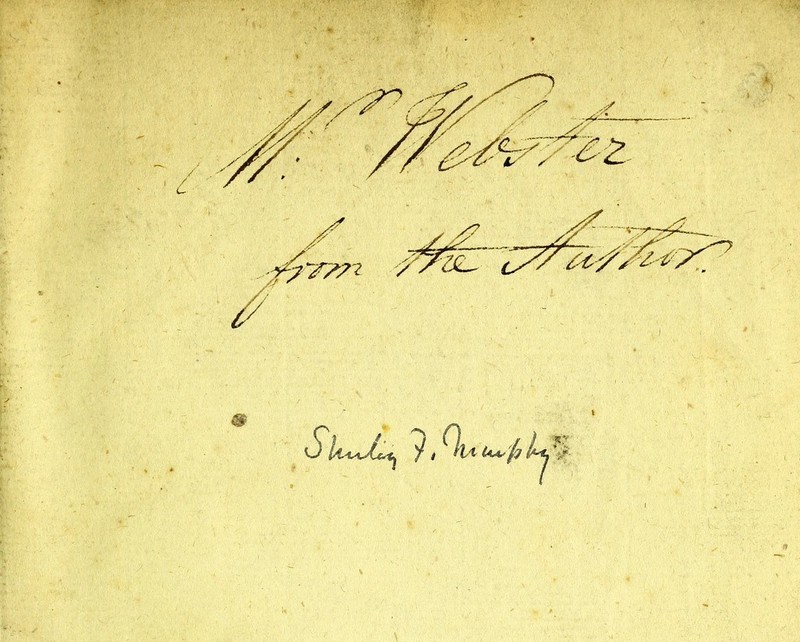 Mr. Webster
from the Author.
Shirley F. Murphy